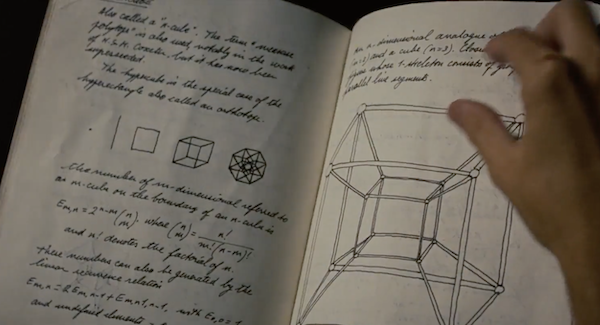 also called a "n-cube". The term "measure
polytope" is also used, notably in the work
of H.S.M. Coxeter but it has now been
superseded.
The hypercube is the special case of the
hyperrectangle also called an orthotope.
the number of m-dimensional referred to
an m-cube on the boundary of an n-cube is
Em,n = 2^n-m (n m), where (n m) = n! / m!(n-m)!
and n! denotes the factorial of n.
These numbers can also be generated by the
linear recurrence relation
Em,n = 2Em,n-1 + Em-1,n-1, with E0,0 = 1
and undefined elements
An n-dimensional analogue
(n=2) and a cube (n=3). Closed
figure whose 1-skeleton consists of
parallel line segment.